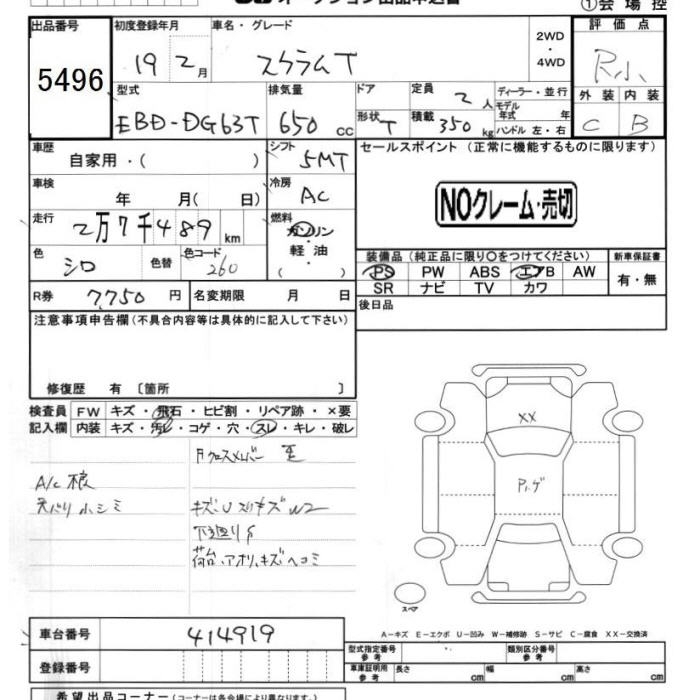 ①会場控
出品番号
5496
初度登録年月
19 2月
車名・グレード
スクラムT
2WD
4WD
評価点
R小
型式
EBD-DG63T
排気量
650 cc
ドア
形状 T
定員 2人
積載 350 kg
ディーラー・並行
モデル年式 年
ハンドル 左・右
外装 内装
C B
車歴
自家用・( )
シフト
5MT
セールスポイント (正常に機能するものに限ります)
車検
年 月( 日)
冷房
AC
NOクレーム・売切
走行
2万7千489km
燃料
ガソリン
軽油
( ・ )
色
シロ
色替
色コード
260
装備品(純正品に限り○をつけてください)
新車保証書
PS PW ABS エアB AW
SR ナビ TV カワ
有・無
R券 7,750円
名変期限 月 日
後日品
注意事項申告欄(不具合内容等は具体的に記入して下さい)
修復歴 有 〔箇所 〕
検査員記入欄
FW キズ・飛石・ヒビ割・リペア跡・×要
内装 キズ・汚レ・コゲ・穴・スレ・キレ・破レ
A/C
キズ・U
W2
下廻りS
荷台、アオリ、キズヘコミ
XX
スペア
A-キズ E-エクボ U-凹み W-補修跡 S-サビ C-腐食 XX-交換済
車台番号 414919
登録番号
型式指定番号 参考
類別区分番号 参考
車庫証明用 参考
長さ cm 幅 cm 高さ cm
希望出品コーナー(コーナーは各会場により異なります。)